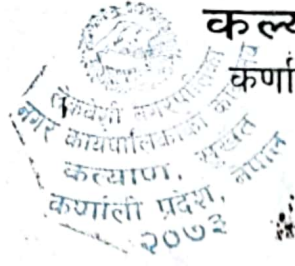 कल्य
कर्णा
लेकवेशी नगरपालिका
नगर कार्यपालिकाको कार्यालय
कल्याण, सुर्खेत
कर्णाली प्रदेश, नेपाल
२०७३